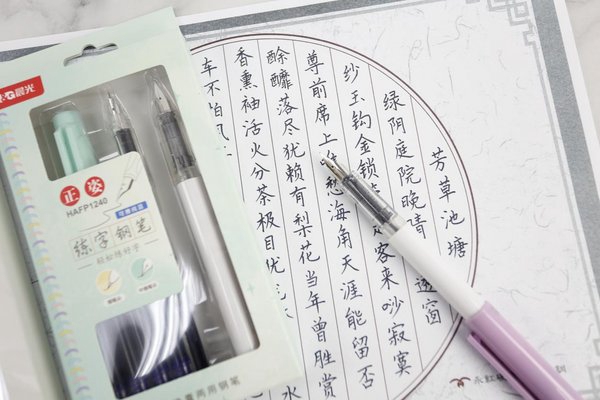 芳草池塘
绿阴庭院晚晴透窗
纱玉钩金锁客来吵寂寞
尊前席上愁海角天涯能留否
酴醾落尽犹赖有梨花当年曾胜赏
香熏袖活火分茶极目
水
车不怕风
M&G晨光
正姿
HAFP1240
练字钢笔
轻松练好字
两用钢笔